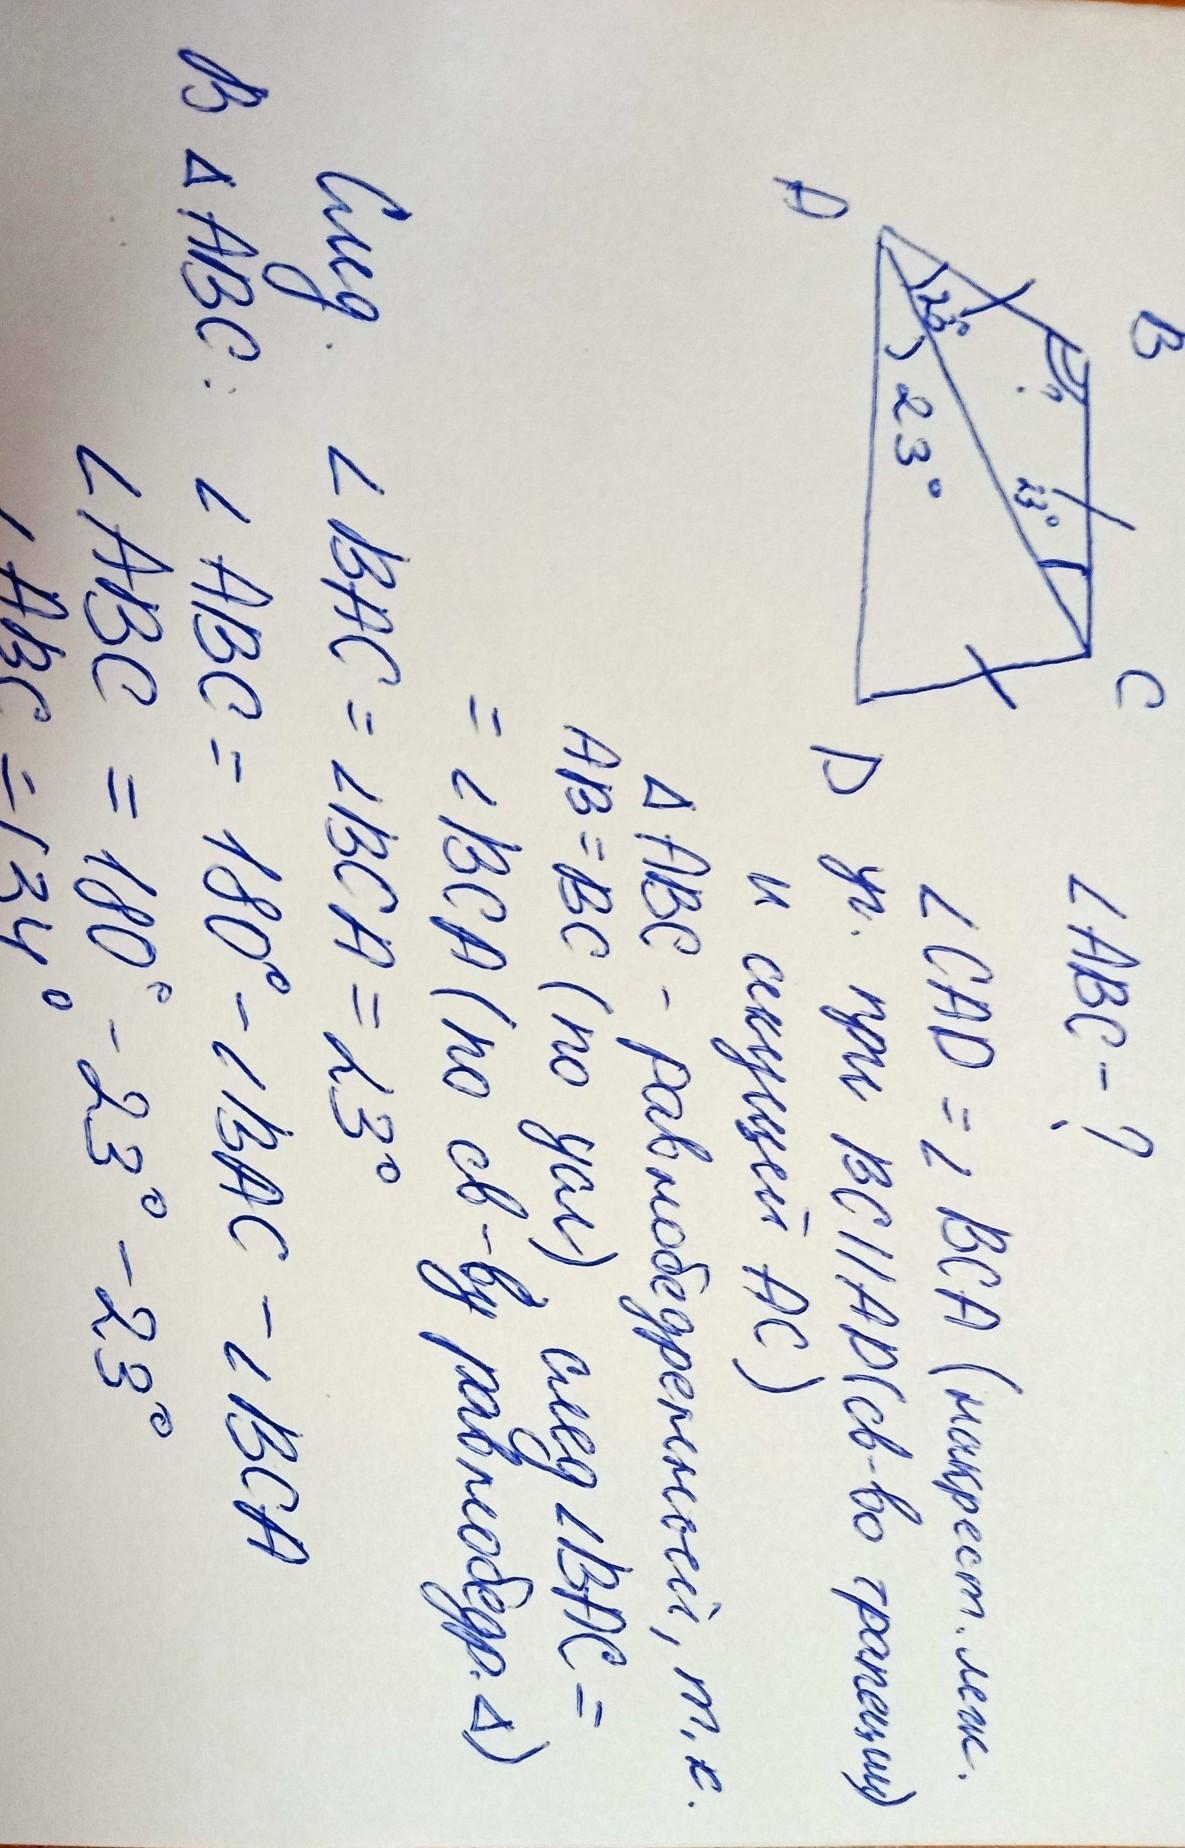 ∠ABC - ?
B
C
A
D
23°
?
23°
23°
∠CAD = ∠BCA (накрест. леж.
уг. при BC||AD (св-во трапеции)
и секущей AC)
∆ ABC - равнобедренный, т.к.
AB = BC (по усл) след ∠BAC =
= ∠BCA (по св-ву равнобедр. ∆)
След. ∠BAC = ∠BCA = 23°
В ∆ ABC: ∠ABC = 180° - ∠BAC - ∠BCA
∠ABC = 180° - 23° - 23°
∠ABC = 134°